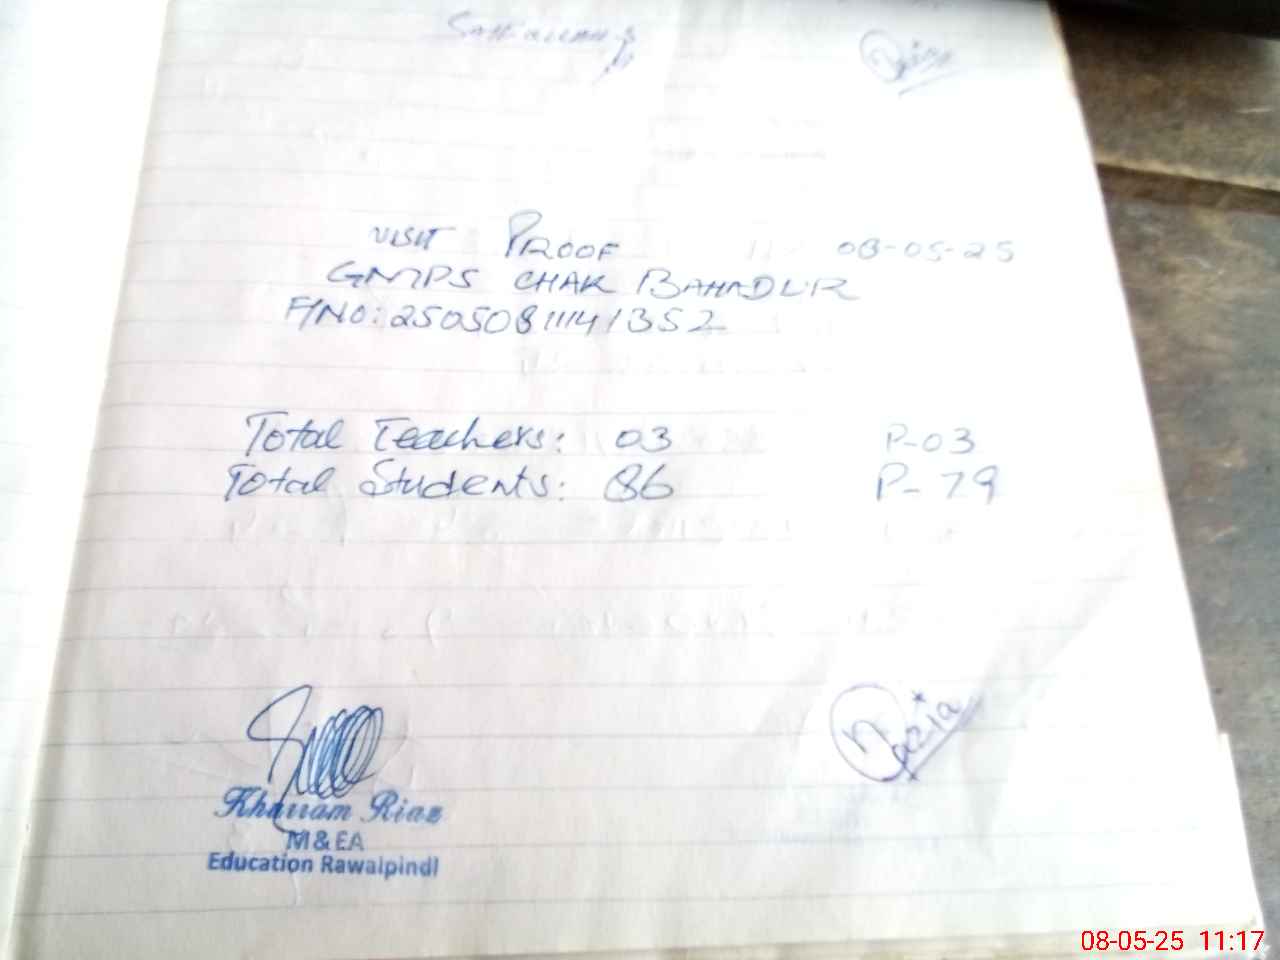 VISIT PROOF 08-05-25
GMPS CHAK BAHADUR
F/NO: 25050811141352
Total Teachers: 03 P-03
Total Students: 86 P-79
Nazia
Khurram Riaz
M & EA
Education Rawalpindi
08-05-25 11:17